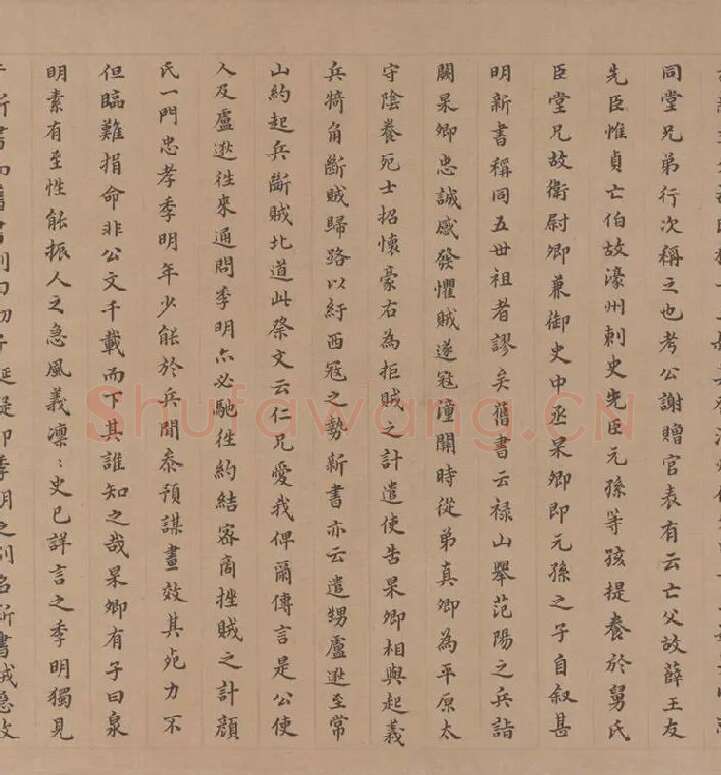 同堂兄弟行次稱之也考公謝贈官表有云亡父故薛王友
先臣惟貞亡伯故濠州刺史先臣元孫等孩提養於舅氏
臣堂兄故衛尉卿兼御史中丞杲卿即元孫之子自叙甚
明新書稱同五世祖者謬矣舊書云祿山舉范陽之兵詣
闗杲卿忠誠感發懼賊遂寇潼關時從弟真卿為平原太
守陰養死士招懷豪右為拒賊之計遣使告杲卿相與起義
兵犄角斷賊歸路以紓西寇之勢新書亦云遣甥盧逖至常
山約起兵斷賊北道此祭文云仁兄愛我俾爾傳言是公使
人及盧逖往來通問季明亦必馳往約結密商挫賊之計顔
氏一門忠孝季明年少能於兵間叅預謀畫效其死力不
但臨難捐命非公文千載而下其誰知之哉杲卿有子曰泉
明素有至性能振人之急風義凛〻史已詳言之季明獨見
Shufawang.CN